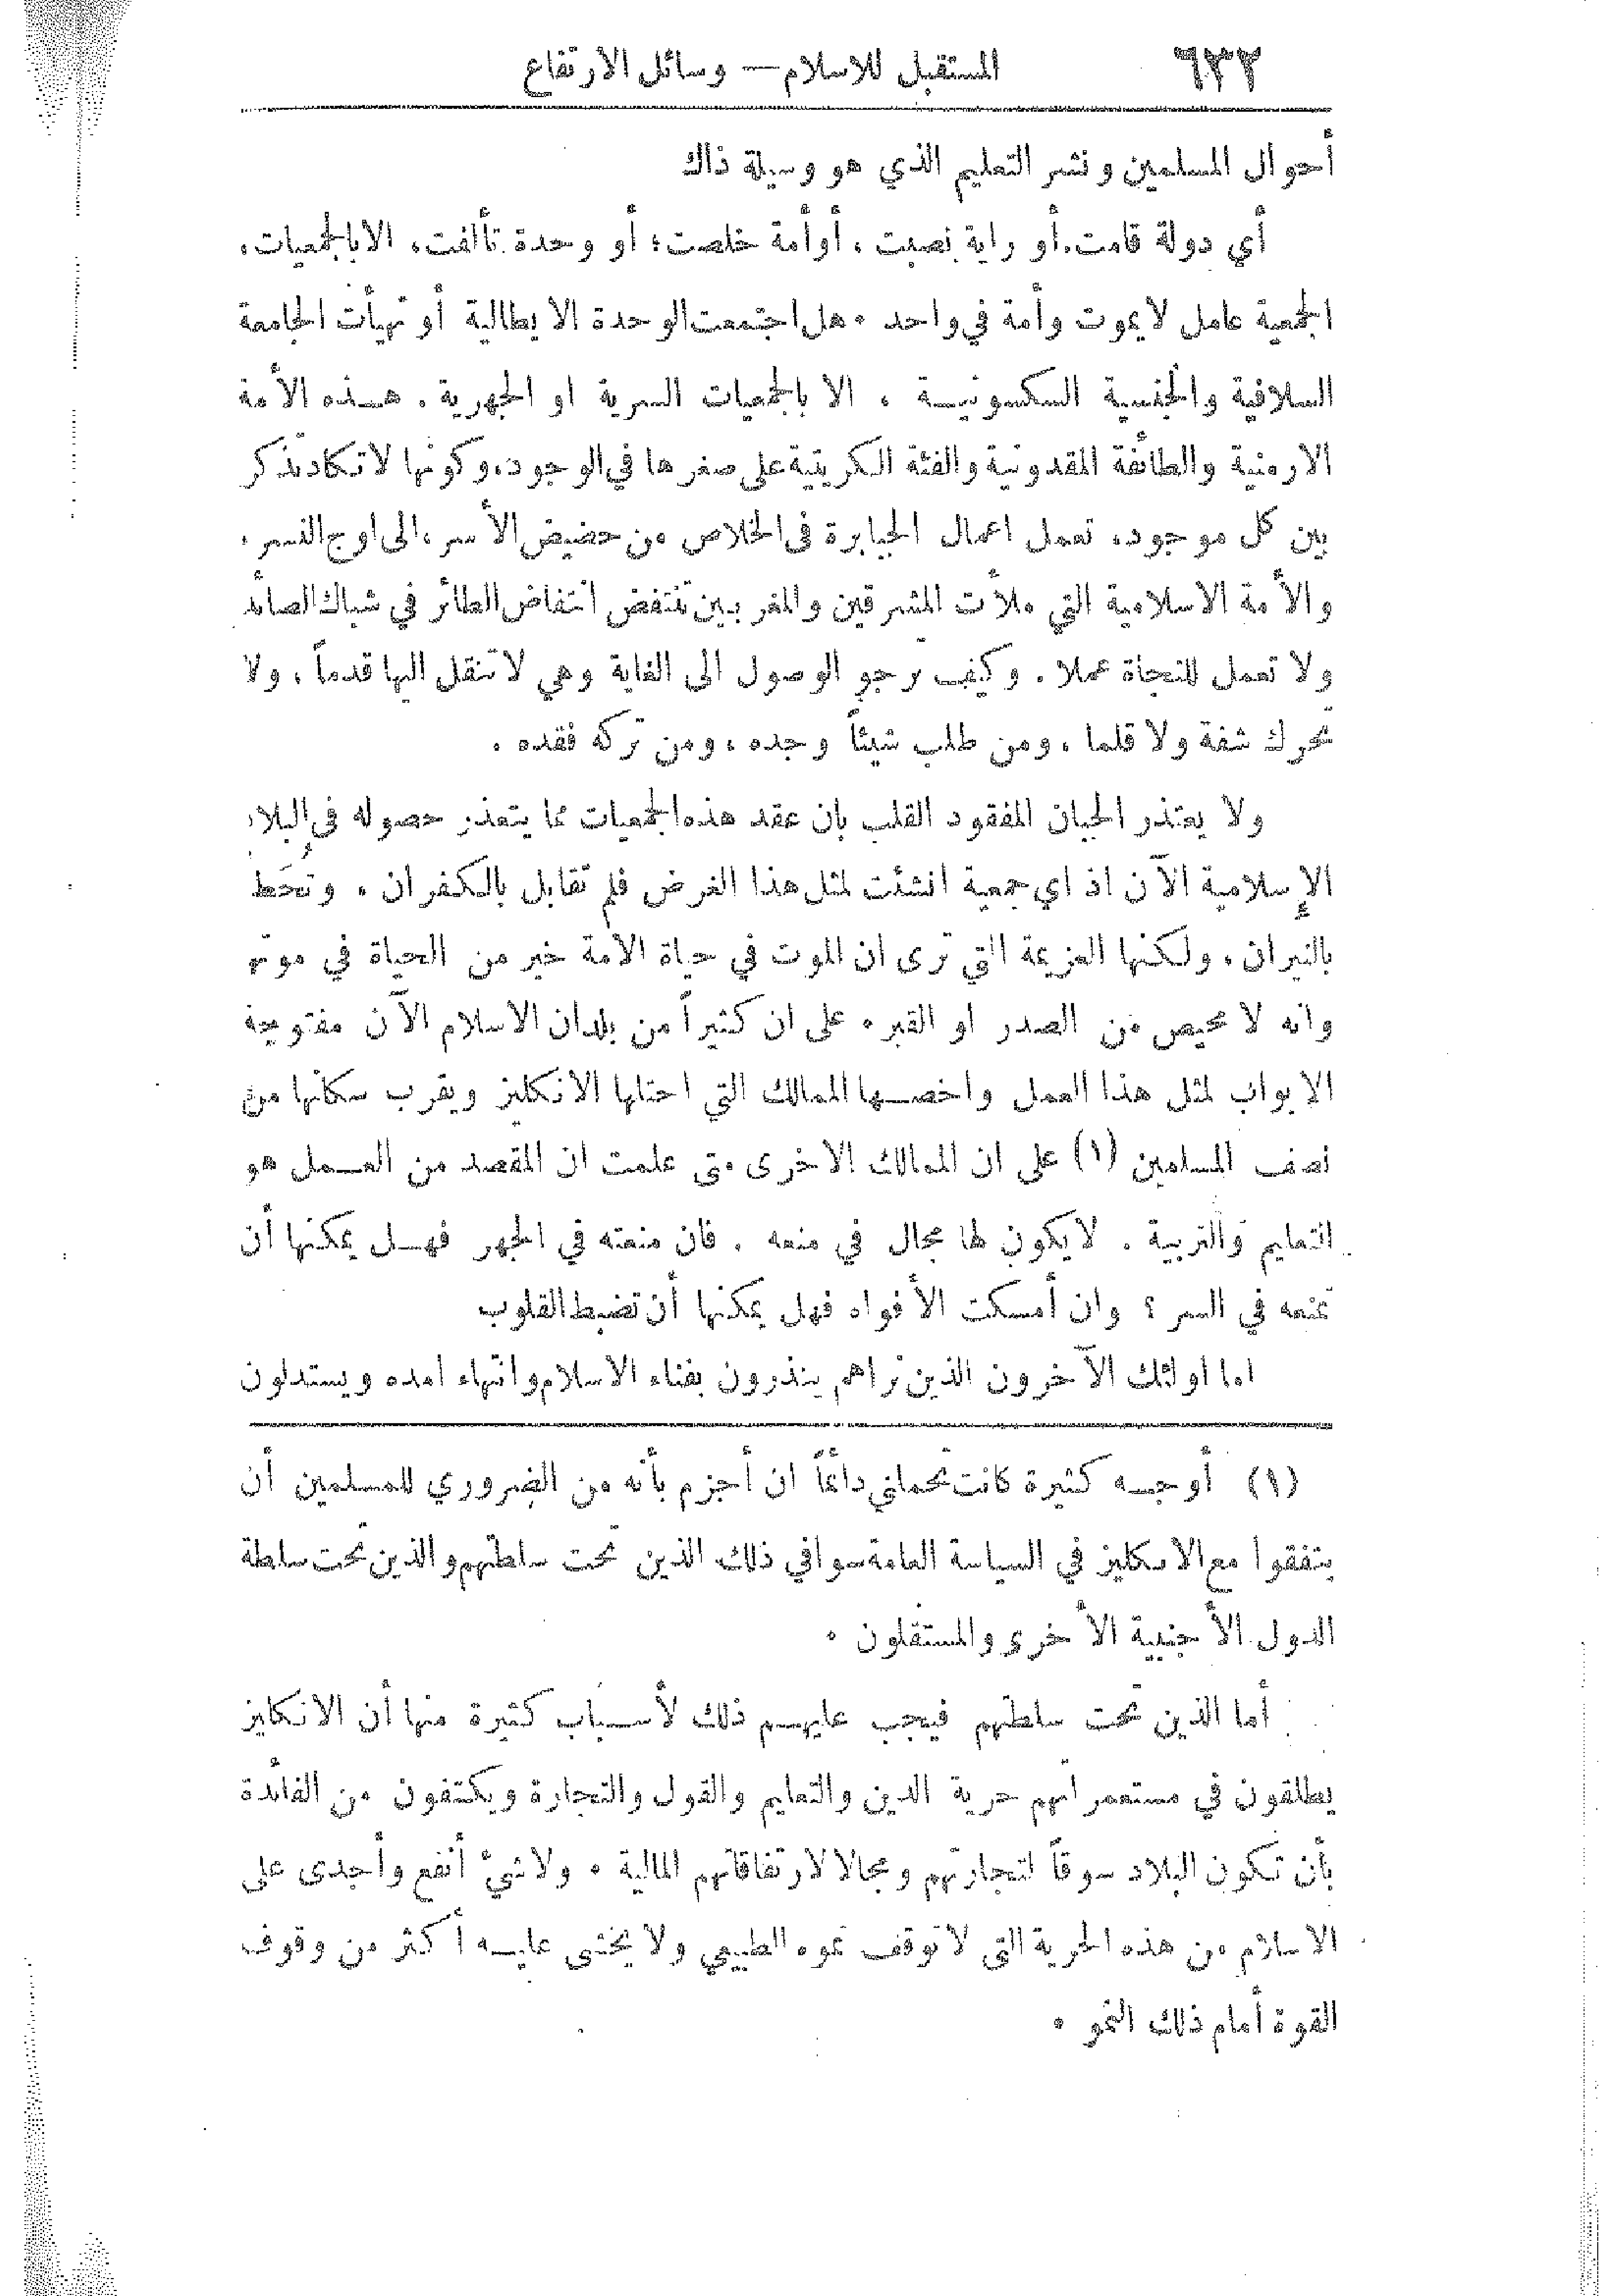 ٦٣٢ المستقبل للاسلام — وسائل الارتفاع
أحوال المسلمين ونشر التعليم الذي هو وسيلة ذاك
أي دولة قامت، أو راية نصبت ، أو أمة خلصت ؛ أو وحدة تألفت، الا بالجمعيات،
الجمعية عامل لا يموت وأمة في واحد . هل اجتمعت الوحدة الايطالية أو تهيأت الجامعة
السلافية والجنسية السكسونية ، الا بالجمعيات السرية او الجهرية . هذه الأمة
الارمنية والطائفة المقدونية والفئة الكريتية على صغرها في الوجود، وكونها لا تكاد تذكر
بين كل موجود، تعمل اعمال الجبابرة في الخلاص من حضيض الأسر، الى اوج النسر ،
والأمة الاسلامية التي ملأت المشرقين والمغربين تنتفض انتفاض الطائر في شباك الصائد
ولا تعمل للنجاة عملا . وكيف ترجو الوصول الى الغاية وهي لا تنقل اليها قدماً ، ولا
تحرك شفة ولا قلما ، ومن طلب شيئاً وجده ، ومن تركه فقده .
ولا يعتذر الجبان المفقود القلب بان عقد هذه الجمعيات مما يتعذر حصوله في البلاد
الإسلامية الآن اذ اي جمعية انشئت لمثل هذا الغرض فلم تقابل بالكفران . وتُحَط
بالنيران . ولكنها العزيمة التي ترى ان الموت في حياة الامة خير من الحياة في موتها
وانه لا محيص من الصدر او القبر . على ان كثيراً من بلدان الاسلام الآن مفتوحة
الابواب لمثل هذا العمل واخصها الممالك التي احتلها الانكليز ويقرب سكانها من
نصف المسلمين (١) على ان الممالك الاخرى متى علمت ان المقصد من العمل هو
التعليم والتربية . لا يكون لها مجال في منعه . فان منعته في الجهر فهل يمكنها أن
تمنعه في السر ؟ وان أمسكت الأفواه فهل يمكنها أن تضبط القلوب
اما اولئك الآخرون الذين نراهم ينذرون بفناء الاسلام وانتهاء امده ويستدلون
(١) أوجه كثيرة كانت تحملني دائماً ان أجزم بأنه من الضروري للمسلمين أن
يتفقوا مع الانكليز في السياسة العامة سوا في ذلك الذين تحت سلطتهم والذين تحت سلطة
الدول الأجنبية الأخرى والمستقلون .
أما الذين تحت سلطتهم فيجب عليهم ذلك لأسباب كثيرة منها أن الانكليز
يطلقون في مستعمراتهم حرية الدين والتعليم والقول والتجارة ويكتفون من الفائدة
بأن تكون البلاد سوقاً لتجارتهم ومجالا لارتفاقاتهم المالية . ولا شيء أنفع وأجدى على
الاسلام من هذه الحرية التي لا توقف نموه الطبيعي ولا يخشى عليه أكثر من وقوف
القوة أمام ذلك النمو .